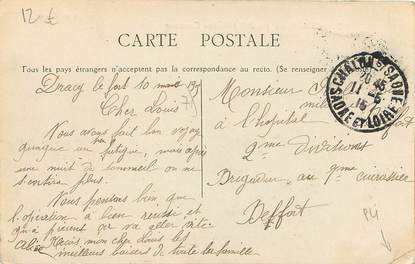 12 £
CARTE POSTALE
Tous les pays étrangers n'acceptent pas la correspondance au recto. (Se renseigner
Dracy le fort 10 mars
Cher Louis
Nous avons fait bon voyage
quoique un peu fatigué, mais après
une nuit de sommeil on ne
s'en tira plus.
Nous pensons bien que
l'opération a bien réussi et
qu'à présent ça va aller vite.
Reçois mon cher Louis les
meilleurs baisers de toute la famille
Monsieur
à l'hopital
2me Divisions
Brigadier au 9me cuirassier
Belfort
CHALON S SAONE
11 -5
15
SAONE ET LOIRE